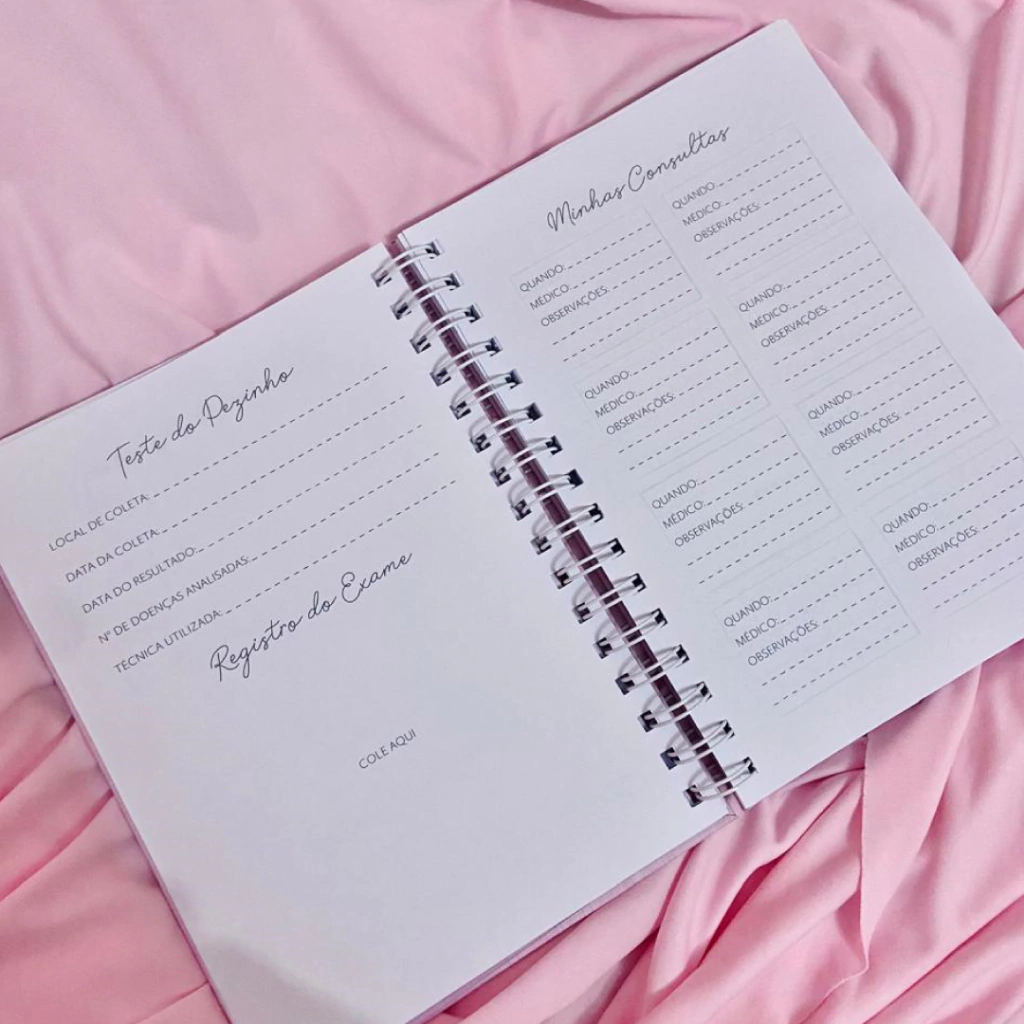 Teste do Pezinho
LOCAL DE COLETA:
DATA DA COLETA:
DATA DO RESULTADO:
Nº DE DOENÇAS ANALISADAS:
TÉCNICA UTILIZADA:
Registro do Exame
COLE AQUI
Minhas Consultas
QUANDO:
MÉDICO:
OBSERVAÇÕES:
QUANDO:
MÉDICO:
OBSERVAÇÕES:
QUANDO:
MÉDICO:
OBSERVAÇÕES:
QUANDO:
MÉDICO:
OBSERVAÇÕES:
QUANDO:
MÉDICO:
OBSERVAÇÕES:
QUANDO:
MÉDICO:
OBSERVAÇÕES:
QUANDO:
MÉDICO:
OBSERVAÇÕES:
QUANDO:
MÉDICO:
OBSERVAÇÕES: